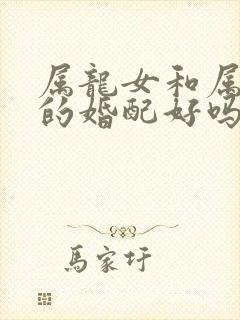 属龍女和属
的婚配好吗
馬家圩